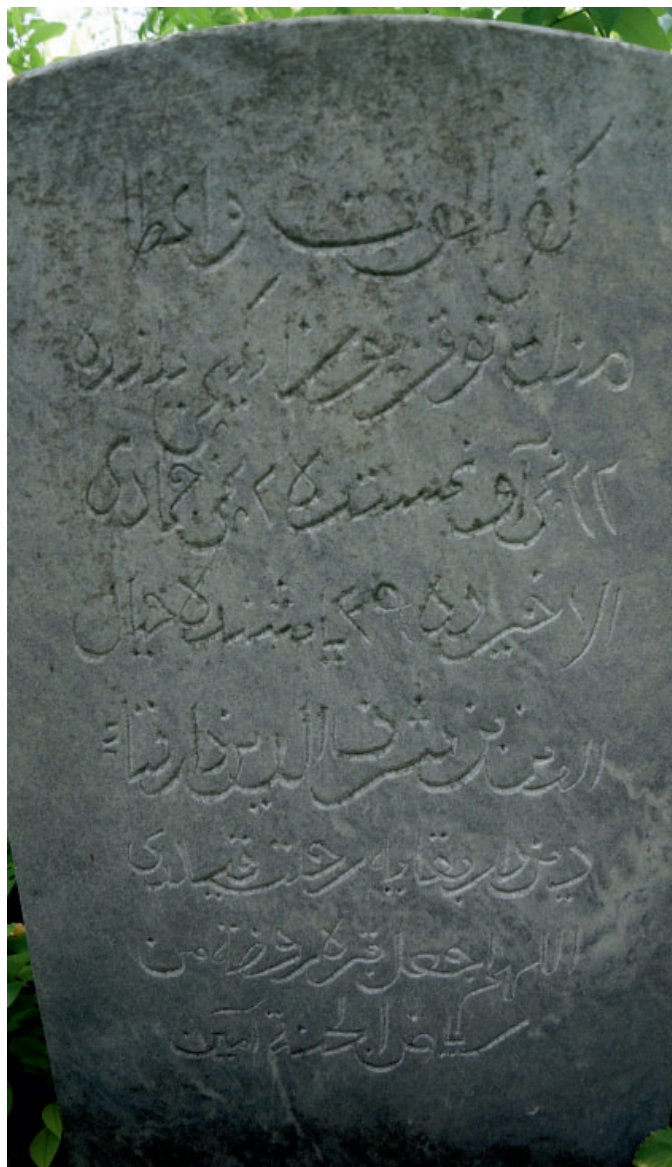 كفى بالموت واعظا
منك توقز يوز ايكنچى يلنده
٢٢ نچى آوغستنده ٢ نچى جمادى
الاخيرده ٤٩ ياشنده خيال
الدين بن شرف الدين دار فنائ
دين دار بقايه رحلت قيلدى
اللهم اجعل قبره روضة من
رياض الجنة آمين